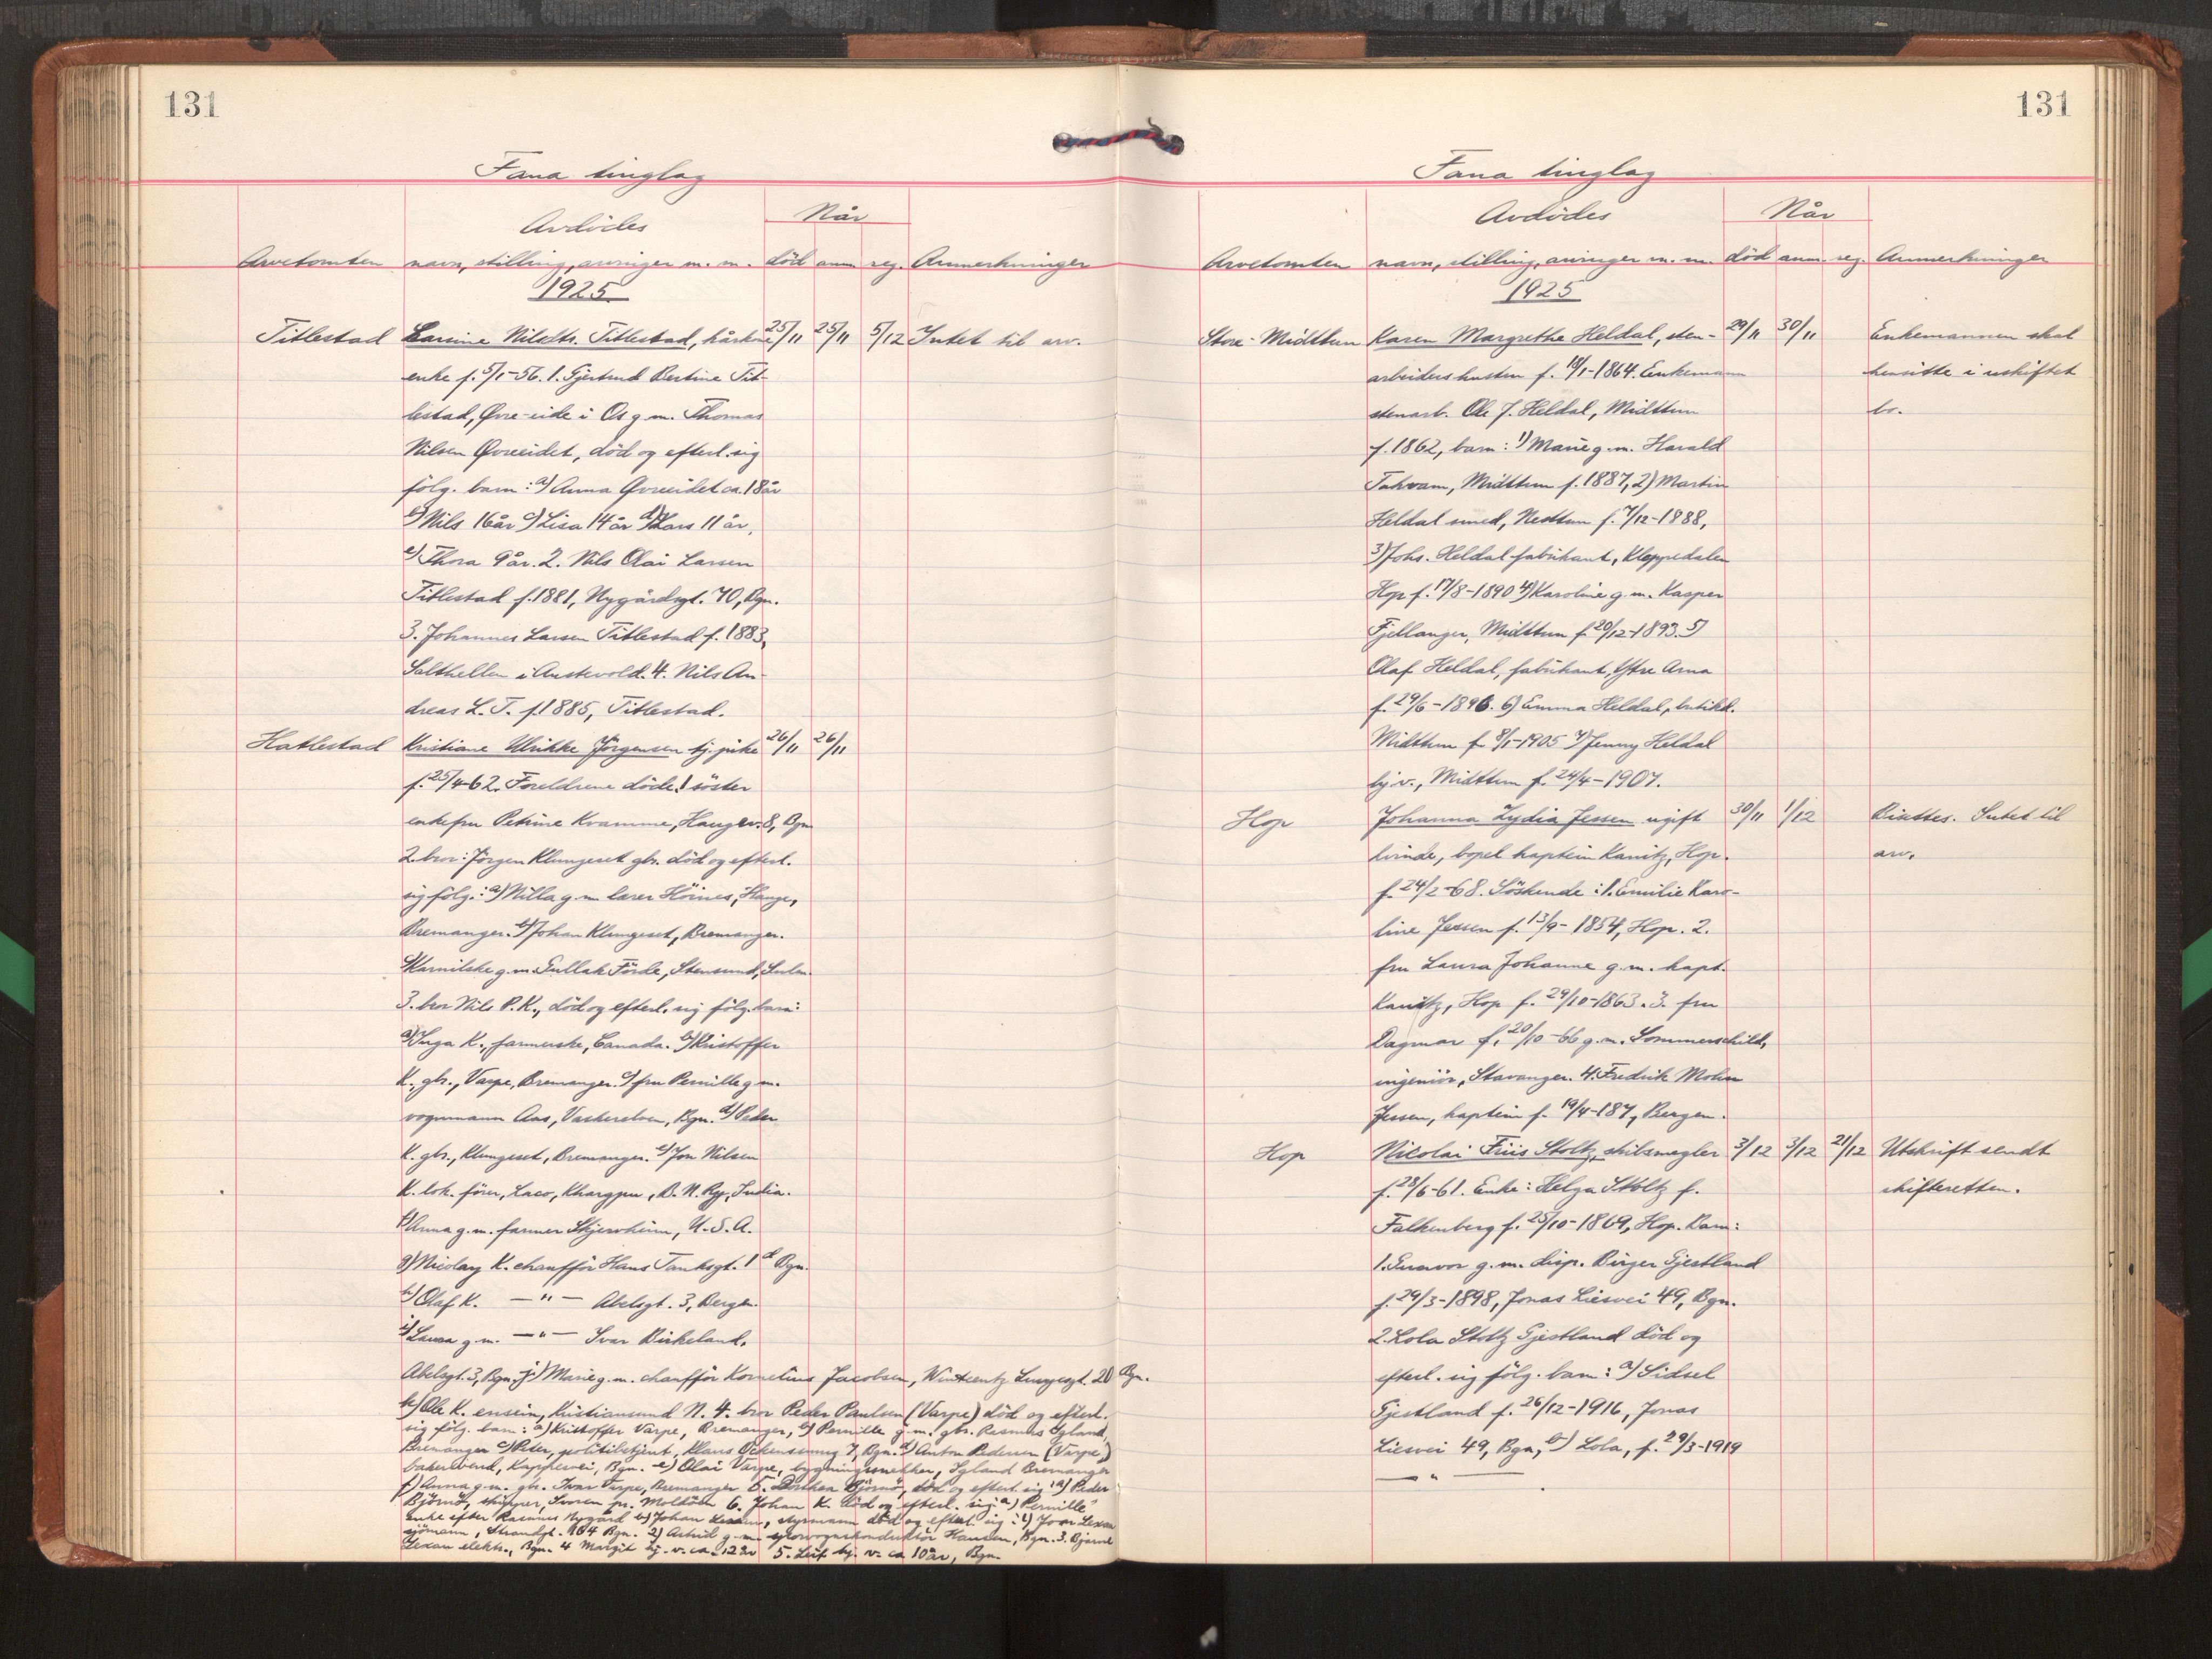 131
Fana tinglag
Avdödes
Når
Arvetomten navn, stilling, arvinger m. m. död anm reg. Anmerkninger
1925
Titlestad Larsine Nilsdtr. Titlestad, kårkone 25/11 25/11 5/12 Intet til arv.
enke f. 5/1-56. 1. Gjertrud Bertine Tit-
lestad, Øvre-eide i Os g. m. Thomas
Nilsen Øvreeidet, död og efterl. sig
fölg. barn: a) Anna Øvreeidet ca. 18 år
b) Nils 16 år c) Lisa 14 år d) Lars 11 år,
e) Thora 9 år. 2. Nils Olai Larsen
Titlestad f. 1881, Nygårdsgt. 70, Bgn.
3. Johannes Larsen Titlestad f. 1883,
Salthellen i Austevold. 4. Nils An-
dreas L. T. f. 1885, Titlestad.
Hatlestad Kristiane Ulrikke Jörgensen tj. pike 26/11 26/11
f. 25/4-62. Foreldrene döde. 1 söster
enkefru Petrine Kramme, Haugev. 8, Bgn
2. bror: Jörgen Klungeset gbr. död og efterl.
sig fölg.: a) Milla g. m. lærer Höines, Hauge,
Bremanger. b) Johan Klungeset, Bremanger.
g. m. Gullak Förde, Stensund,
3. bror Nils P. K., död og efterl. sig fölg. barn:
a) Inga K., farmerske, Canada. b) Kristoffer
K., gbr., Varpe, Bremanger. c) fru Pernille g. m.
vognmann Aas, Vaskerelven, Bgn. d) Peder
K. gbr., Klungeset, Bremanger. e) Jon Nilsen
K. lok. förer, Laco, Khargpu, B. N. Ry, India.
f) Anna g. m. farmer Skjerveheim, U. S. A.
g) Nicolay K. chafför Hans Tanksgt. 1 d Bgn.
h) Olaf K. — " — Abelsgt. 3, Bergen.
i) Laura g. m. — " — Ivar Birkeland,
Abelsgt. 3, Bgn. j) Marie g. m. chafför Kornelius Jacobsen, 20 Bgn.
k) Ole K. ensein, Kristiansund N. 4. bror Peder Paulsen (Varpe) död og efterl.
sig fölg. barn: a) Kristoffer Varpe, Bremanger, b) Pernille g. m. gbr. Rasmus Igland,
Bremanger c) Peter, politibetjent, Klaus 7, Bgn. d) Anton Pedersen (Varpe),
Kappevei, Bgn. e) Olai Varpe, bygningssnekker, Igland Bremanger
f) Anna g. m. gbr. Ivar Varpe, Bremanger 5. Björnö, död og efterl. sig: a) Peder
Björnö, skipper, pr. Moldöen 6. Johan K. död og efterl. sig a) Pernille
enke efter Rasmus Nygård b) Johan styrmann död og efterl. sig: 1) Lexau
sjömann, Strandgt. 104 Bgn. 2) Astrid g. m. sporvognskonduktör Hansen, Bgn. 3. Bjarne
Lexau elektr., Bgn. 4 Margit hj. v. ca. 12 år 5. Leif hj. v. ca 10 år, Bgn.
131
Fana tinglag
Avdödes
Når
Arvetomten navn, stilling, arvinger m. m. död anm. reg. Anmerkninger
1925
Store-Midttun Karen Margrethe Heldal, sten- 29/11 30/11 Enkemannen skal
arbeiders hustru f. 18/1-1864. Enkemann hensitte i uskiftet
stenarb. Ole J. Heldal, Midttun bo.
f. 1862, barn: 1) Marie g. m. Harald
Takvam, Midttun f. 1887, 2) Martin
Heldal smed, Nesttun f. 7/12-1888,
3) Johs. Heldal fabrikant, Kloppedalen
Hop f. 17/8-1890 4) Karoline g. m. Kasper
Fjellanger, Midttun f. 20/12-1893. 5)
Olaf Heldal, fabrikant, Ytre Arna
f. 29/6-1896. 6) Emma Heldal, butikd.
Midttun f. 8/1-1905 7) Jenny Heldal
hj. v., Midttun f. 24/4-1907.
Hop Johanna Lydia Jessen ugift 30/11 1/12 Intet til
kvinde, bopel kaptein Kanitz, Hop. arv.
f. 24/2-68. Söskende: 1. Emilie Karo-
line Jessen f. 13/9-1854, Hop. 2.
fru Laura Johanne g. m. kapt.
Kanitz, Hop f. 29/10-1863. 3. fru
Dagmar f. 20/10-66 g. m. Sommerschild,
ingeniör, Stavanger. 4. Fredrik Mohn
Jessen, kaptein f. 19/4-187, Bergen.
Hop Nicolai Friis Stoltz, skibsmegler 3/12 3/12 21/12 Utskrift sendt
f. 28/6-61. Enke: Helga Stoltz f. skifteretten.
Falkenberg f. 25/10-1869, Hop. Barn:
1. Gunvor g. m. disp. Birger Gjestland
f. 29/3-1898, Jonas Liesvei 49, Bgn.
2. Lola Stoltz Gjestland död og
efterl. sig fölg. barn: a) Sidsel
Gjestland f. 26/12-1916, Jonas
Liesvei 49, Bgn, b) Lola, f. 29/3-1919
— " —